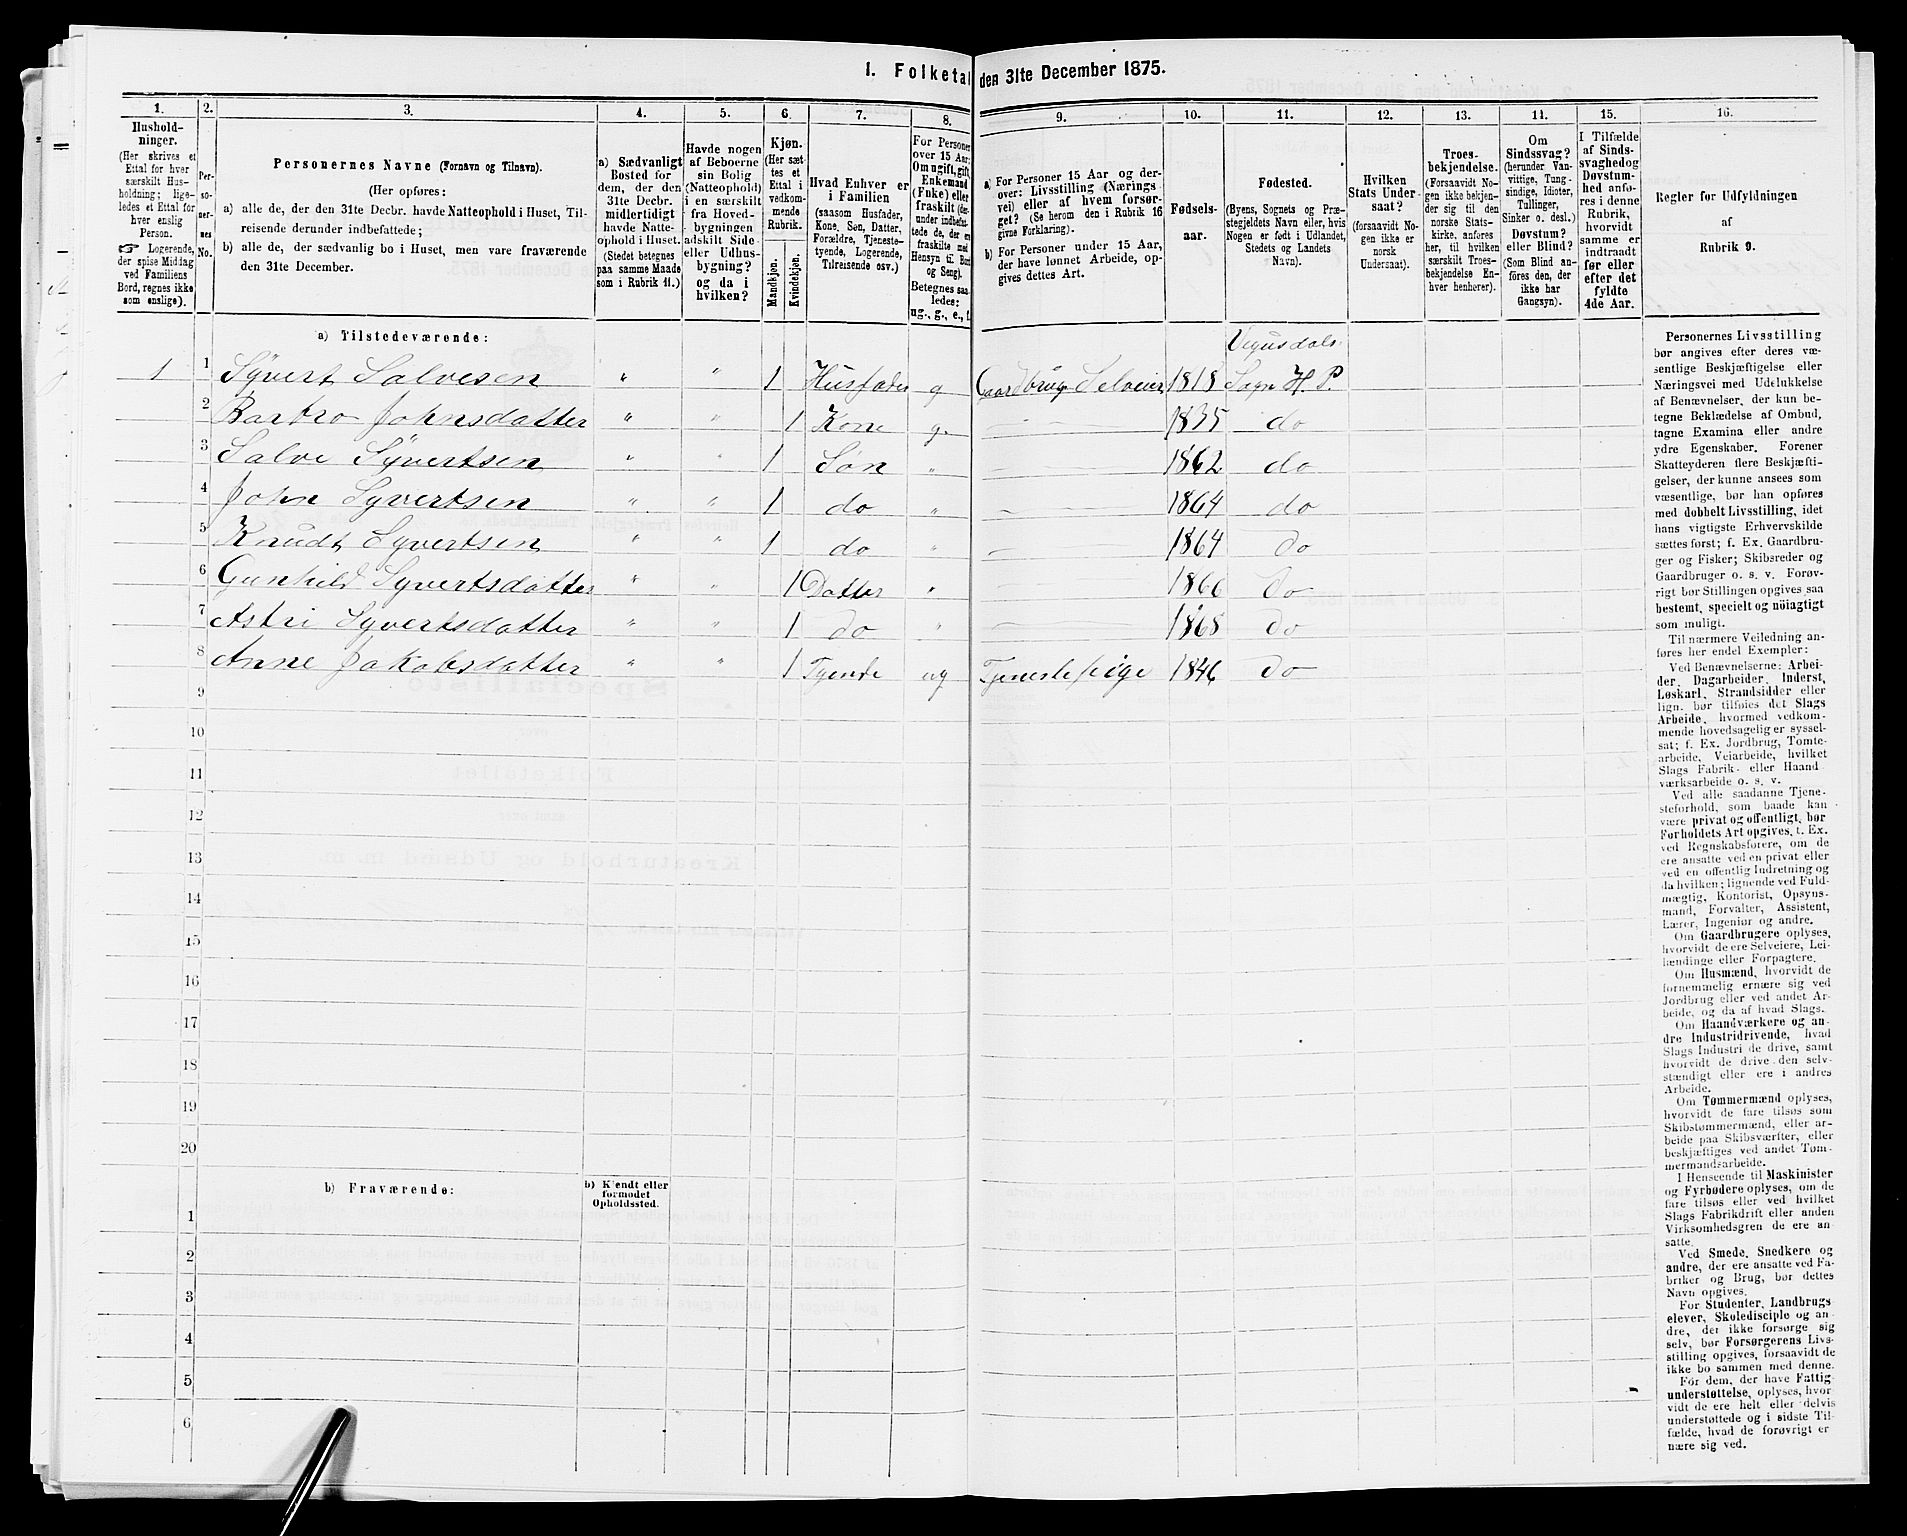 1. Folketal den 31te December 1875.
1. 2. 3. 4. 5. 6. 7. 8. 9. 10. 11. 12. 13. 14. 15. 16.
Hushold-
ninger.
(Her skrives et
Ettal for hver
særskilt Hus-
holdning; lige-
ledes et Ettal for
hver enslig
Person.
☞ Logerende,
der spise Middag
ved Familiens
Bord, regnes ikke
som enslige).
Per-
so-
ner-
nes
No.
Personernes Navne (Fornavn og Tilnavn).
(Her opføres:
a) alle de, der den 31te Decbr. havde Natteophold i Huset, Til-
reisende derunder indbefattede;
b) alle de, der sædvanlig bo i Huset, men vare fraværende
den 31te December.
a) Sædvanligt
Bosted for
dem, der den
31te Decbr.
midlertidigt
havde Natte-
ophold i Huset.
(Stedet betegnes
paa samme Maade
som i Rubrik 11.)
Havde nogen
af Beboerne
sin Bolig
(Natteophold)
i en særskilt
fra Hoved-
bygningen
adskilt Side-
eller Udhus-
bygning?
og da i
hvilken?
Kjøn.
(Her sæt-
tes et
Ettal i
vedkom-
mende
Rubrik.
Mandkjøn.
Kvindekjøn.
Hvad Enhver er
i Familien
(saasom Husfader,
Kone, Søn, Datter,
Forældre, Tjeneste-
tyende, Logerende,
Tilreisende osv.)
For Personer
over 15 Aar:
Om ugift, gift,
Enkemand
(Enke) eller
fraskilt (der-
under indbefat-
tede de, der ere
fraskilte med
Hensyn til Bord
og Seng).
Betegnes saa-
ledes:
ug., g., e., f.
a) For Personer 15 Aar og der-
over: Livsstilling (Nærings
vei) eller af hvem forsør-
get? (Se herom den i Rubrik 16
givne Forklaring).
b) For Personer under 15 Aar,
der have lønnet Arbeide, op-
gives dettes Art.
Fødsels-
aar.
Fødested.
(Byens, Sognets og Præ-
stegjeldets Navn eller, hvis
Nogen er født i Udlandet,
Stedets og Landets
Navn).
Hvilken
Stats Under-
saat?
(forsaavidt No-
gen ikke er
norsk
Undersaat).
Troes-
bekjendelse.
(Forsaavidt No-
gen ikke bekjen-
der sig til den
norske Stats-
kirke, anføres
her, til hvilken
særskilt Troes-
bekjendelse En-
hver henhører).
Om
Sindssvag?
(herunder Van-
vittige, Tung-
sindige, Idioter,
Tullinger,
Sinker o. desl.)
Døvstum?
eller Blind?
(Som Blind an-
føres den, der
ikke har
Gangsyn).
I Tilfælde
af Sinds-
svaghed og
Døvstum-
hed anfø-
res i denne
Rubrik,
hvorvidt
samme er
indtraadt
før eller
efter det
fyldte
4de Aar.
Regler for Udfyldningen
af
Rubrik 9.
a) Tilstedeværende:
Vegusdals
1 1 Syvert Salvesen " " 1 Husfader g Gaardbrug Selveier 1818 Sogn H. P.
2 Barbro Johnsdatter " " 1 Kone g. — 1835 do
3 Salve Syvertsen " " 1 Søn " — 1862 do
4 John Syvertsen " " 1 do " — 1864 do
5 Knudt Syvertsen " " 1 do " — 1864 do
6 Gunhild Syvertsdatter " " 1 Datter " — 1866 do
7 Astri Syvertsdatter " " 1 do " — 1868 do
8 Anne Jakobsdatter " " 1 Tyende ug Tjenestepige 1846 do
9
10
11
12
13
14
15
16
17
18
19
20
b) Fraværende:
b) Kjendt eller
formodet
Opholdssted.
1
2
3
4
5
6
Personernes Livsstilling
bør angives efter deres væ-
sentlige Beskjæftigelse eller
Næringsvei med Udelukkelse
af Benævnelser, der kun be-
tegne Beklædelse af Ombud,
tagne Examina eller andre
ydre Egenskaber. Forener
Skatteyderen flere Beskjæfti-
gelser, der kunne ansees som
væsentlige, bør han opføres
med dobbelt Livsstilling, idet
hans vigtigste Erhvervskilde
sættes først; f. Ex. Gaardbru-
ger og Fisker; Skibsreder og
Gaardbruger o. s. v. Forøv-
rigt bør Stillingen opgives saa
bestemt, specielt og nöiagtigt
som muligt.
Til nærmere Veiledning an-
føres her endel Exempler:
Ved Benævnelserne: Arbei-
der, Dagarbeider, Inderst,
Løskarl, Strandsidder eller
lign. bør tilføies det Slags
Arbeide, hvormed vedkom-
mende hovedsagelig er syssel-
sat; f. Ex. Jordbrug, Tomte-
arbeide, Veiarbeide, hvilket
Slags Fabrik- eller Haand
værksarbeide o. s. v.
Ved alle saadanne Tjene-
steforhold, som baade kan
være privat og offentligt, bør
Forholdets Art opgives, t. Ex.
ved Regnskabsførere, om de
ere ansatte ved en privat eller
ved en offentlig Indretning og
da hvilken; lignende ved Fuld-
mægtig, Kontorist, Opsyns-
mand, Forvalter, Assistent,
Lærer, Ingeniør og andre.
Om Gaardbrugere oplyses,
hvorvidt de ere Selveiere, Lei-
lændinge eller Forpagtere.
Om Husmænd, hvorvidt de
fornemmelig ernære sig ved
Jordbrug eller ved andet Ar-
beide, og da af hvad Slags.
Om Haandværkere og an-
dre Industridrivende, hvad
Slags Industri de drive, samt
hvorvidt de drive den selv-
stændigt eller ere i andres
Arbeide.
Om Tømmermænd oplyses,
hvorvidt de fare tilsøs som
Skibstømmermænd, eller ar-
beide paa Skibsværfter, eller
beskjæftiges ved andet Tøm-
mermandsarbeide.
I Henseende til Maskinister
og Fyrbødere oplyses, om de
fare tilsøs eller ved hvilket
Slags Fabrikdrift eller anden
Virksomhedsgren de ere an-
satte.
Ved Smede, Snedkere og
andre, der ere ansatte ved Fa-
briker og Brug, bør dettes
Navn opgives.
For Studenter, Landbrugs
elever, Skoledisciple og an-
dre, der ikke forsørge sig
selv, bør Forsørgerens Livs-
stilling opgives, forsaavidt de
ikke bo sammen med denne.
For dem, der have Fattig-
understøttelse, oplyses, hvor-
vidt de ere helt eller delvis
understøttede og i sidste Til-
fælde, hvad de forøvrigt er
nære sig ved.